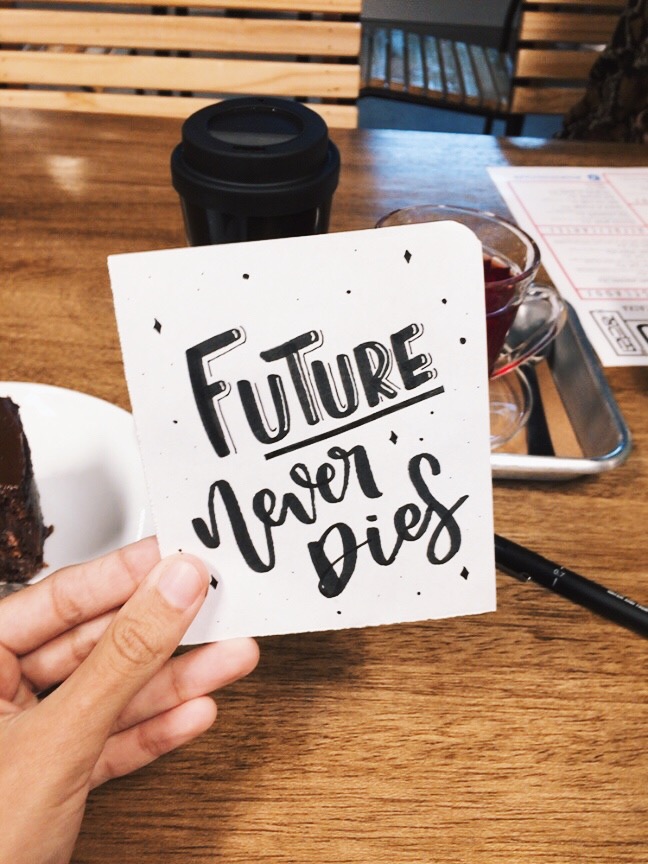 FUTURE
never
Dies
0.7